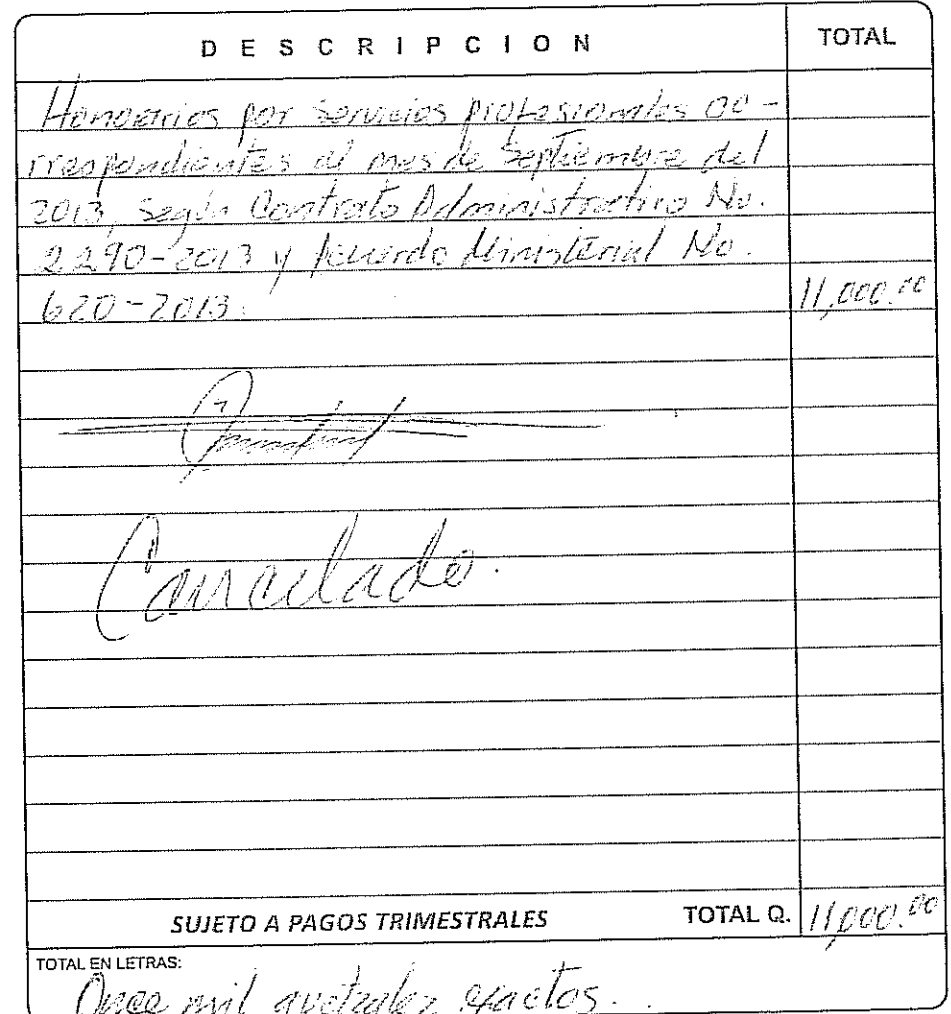 DESCRIPCION TOTAL
Honorarios por servicios profesionales co-
rrespondientes al mes de Septiembre del
2013, Según Contrato Administrativo No.
2290-2013 y Acuerdo Ministerial No.
620-2013. 11,000.00
Cancelado.
SUJETO A PAGOS TRIMESTRALES TOTAL Q. 11,000.00
TOTAL EN LETRAS:
Once mil quetzales exactos...